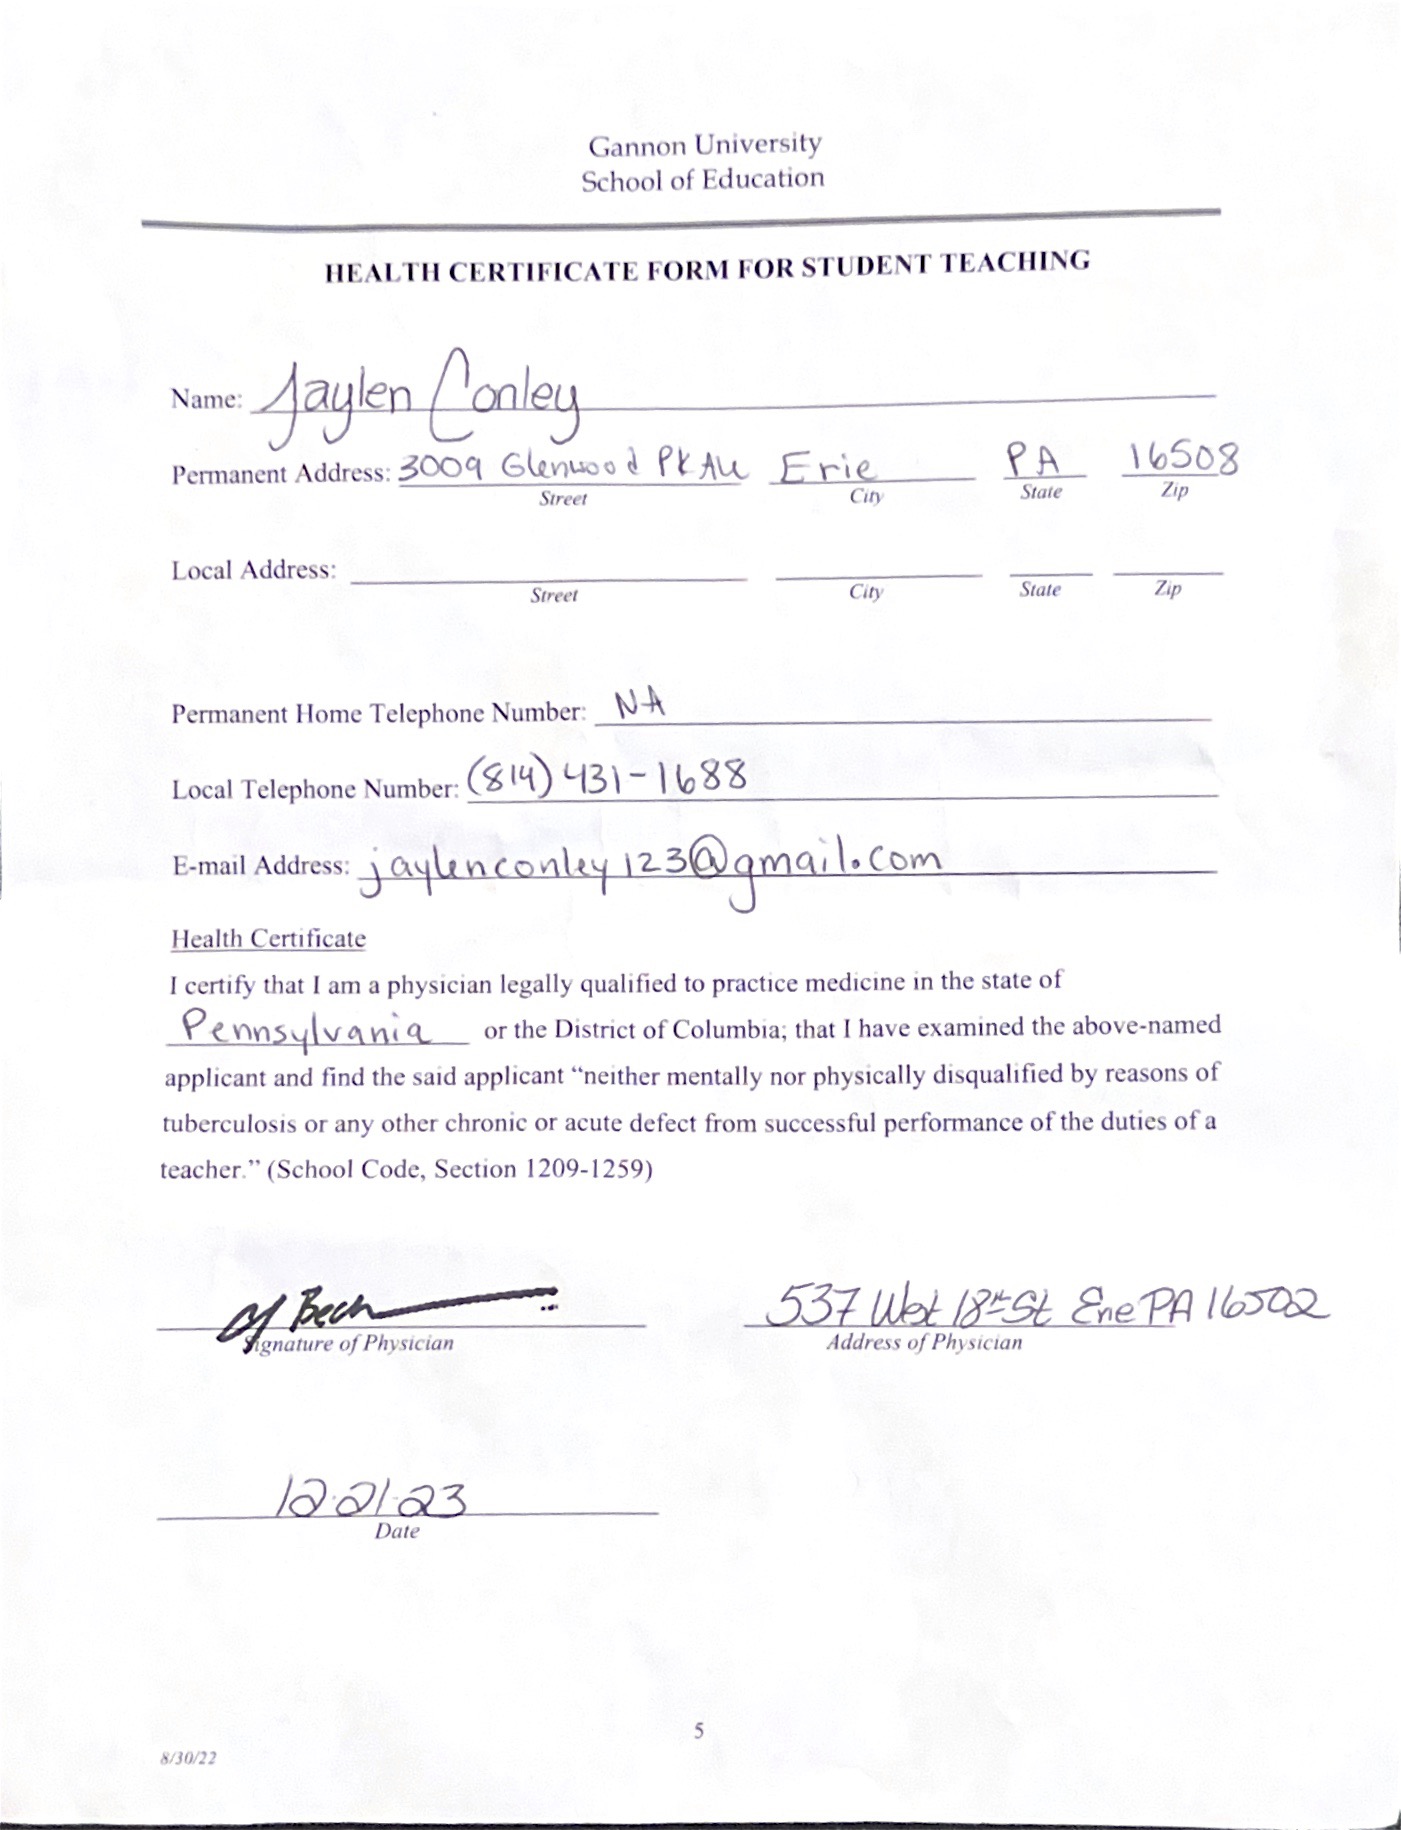 Gannon University
School of Education
HEALTH CERTIFICATE FORM FOR STUDENT TEACHING
Name: Jaylen Conley
Permanent Address: 3009 Glenwood Pk Ave Erie PA 16508
Street City State Zip
Local Address:
Street City State Zip
Permanent Home Telephone Number: NA
Local Telephone Number: (814) 431-1688
E-mail Address: jaylenconley123@gmail.com
Health Certificate
I certify that I am a physician legally qualified to practice medicine in the state of
Pennsylvania or the District of Columbia; that I have examined the above-named
applicant and find the said applicant “neither mentally nor physically disqualified by reasons of
tuberculosis or any other chronic or acute defect from successful performance of the duties of a
teacher.” (School Code, Section 1209-1259)
537 West 18th St Erie PA 16502
Signature of Physician Address of Physician
12·21·23
Date
5
8/30/22